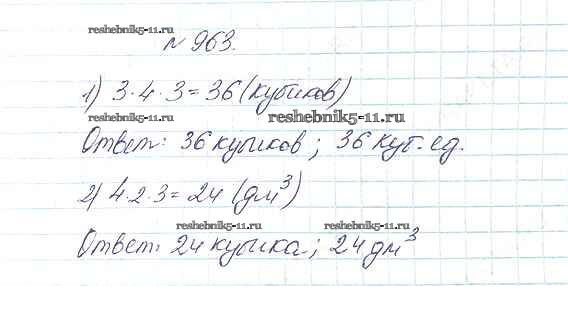 reshebnik5-11.ru
№ 963.
reshebnik5-11.ru reshebnik5-11.ru
1) 3·4·3=36 (кубиков)
reshebnik5-11.ru
Ответ: 36 кубиков; 36 куб. ед.
2) 4·2·3=24 (дм³)
reshebnik5-11.ru reshebnik5-11.ru
Ответ: 24 кубика; 24 дм³